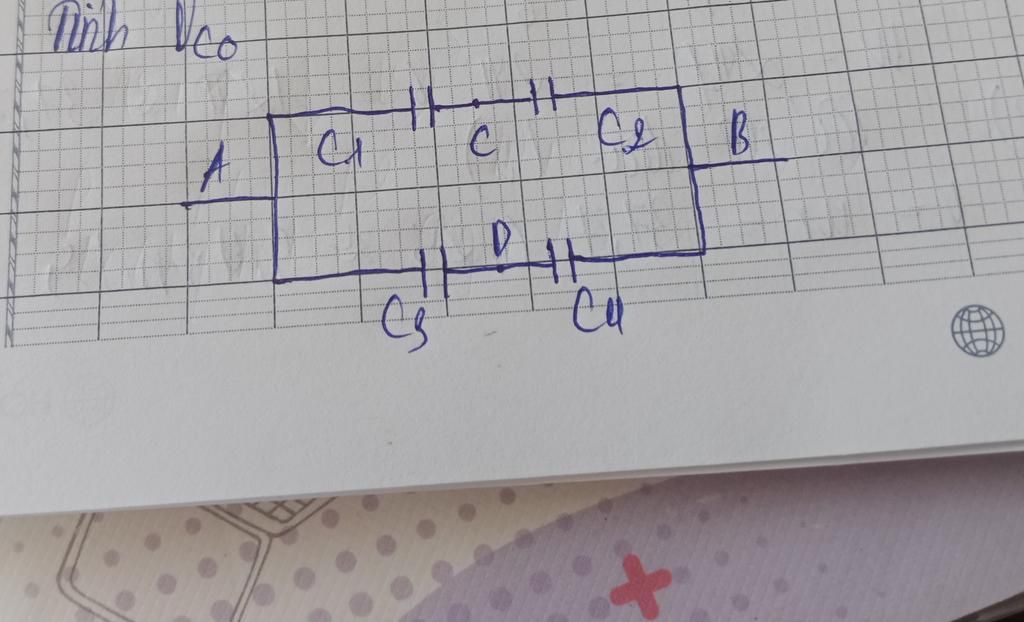 Tính UCD
A
C1
C
C2
B
D
C3
C4